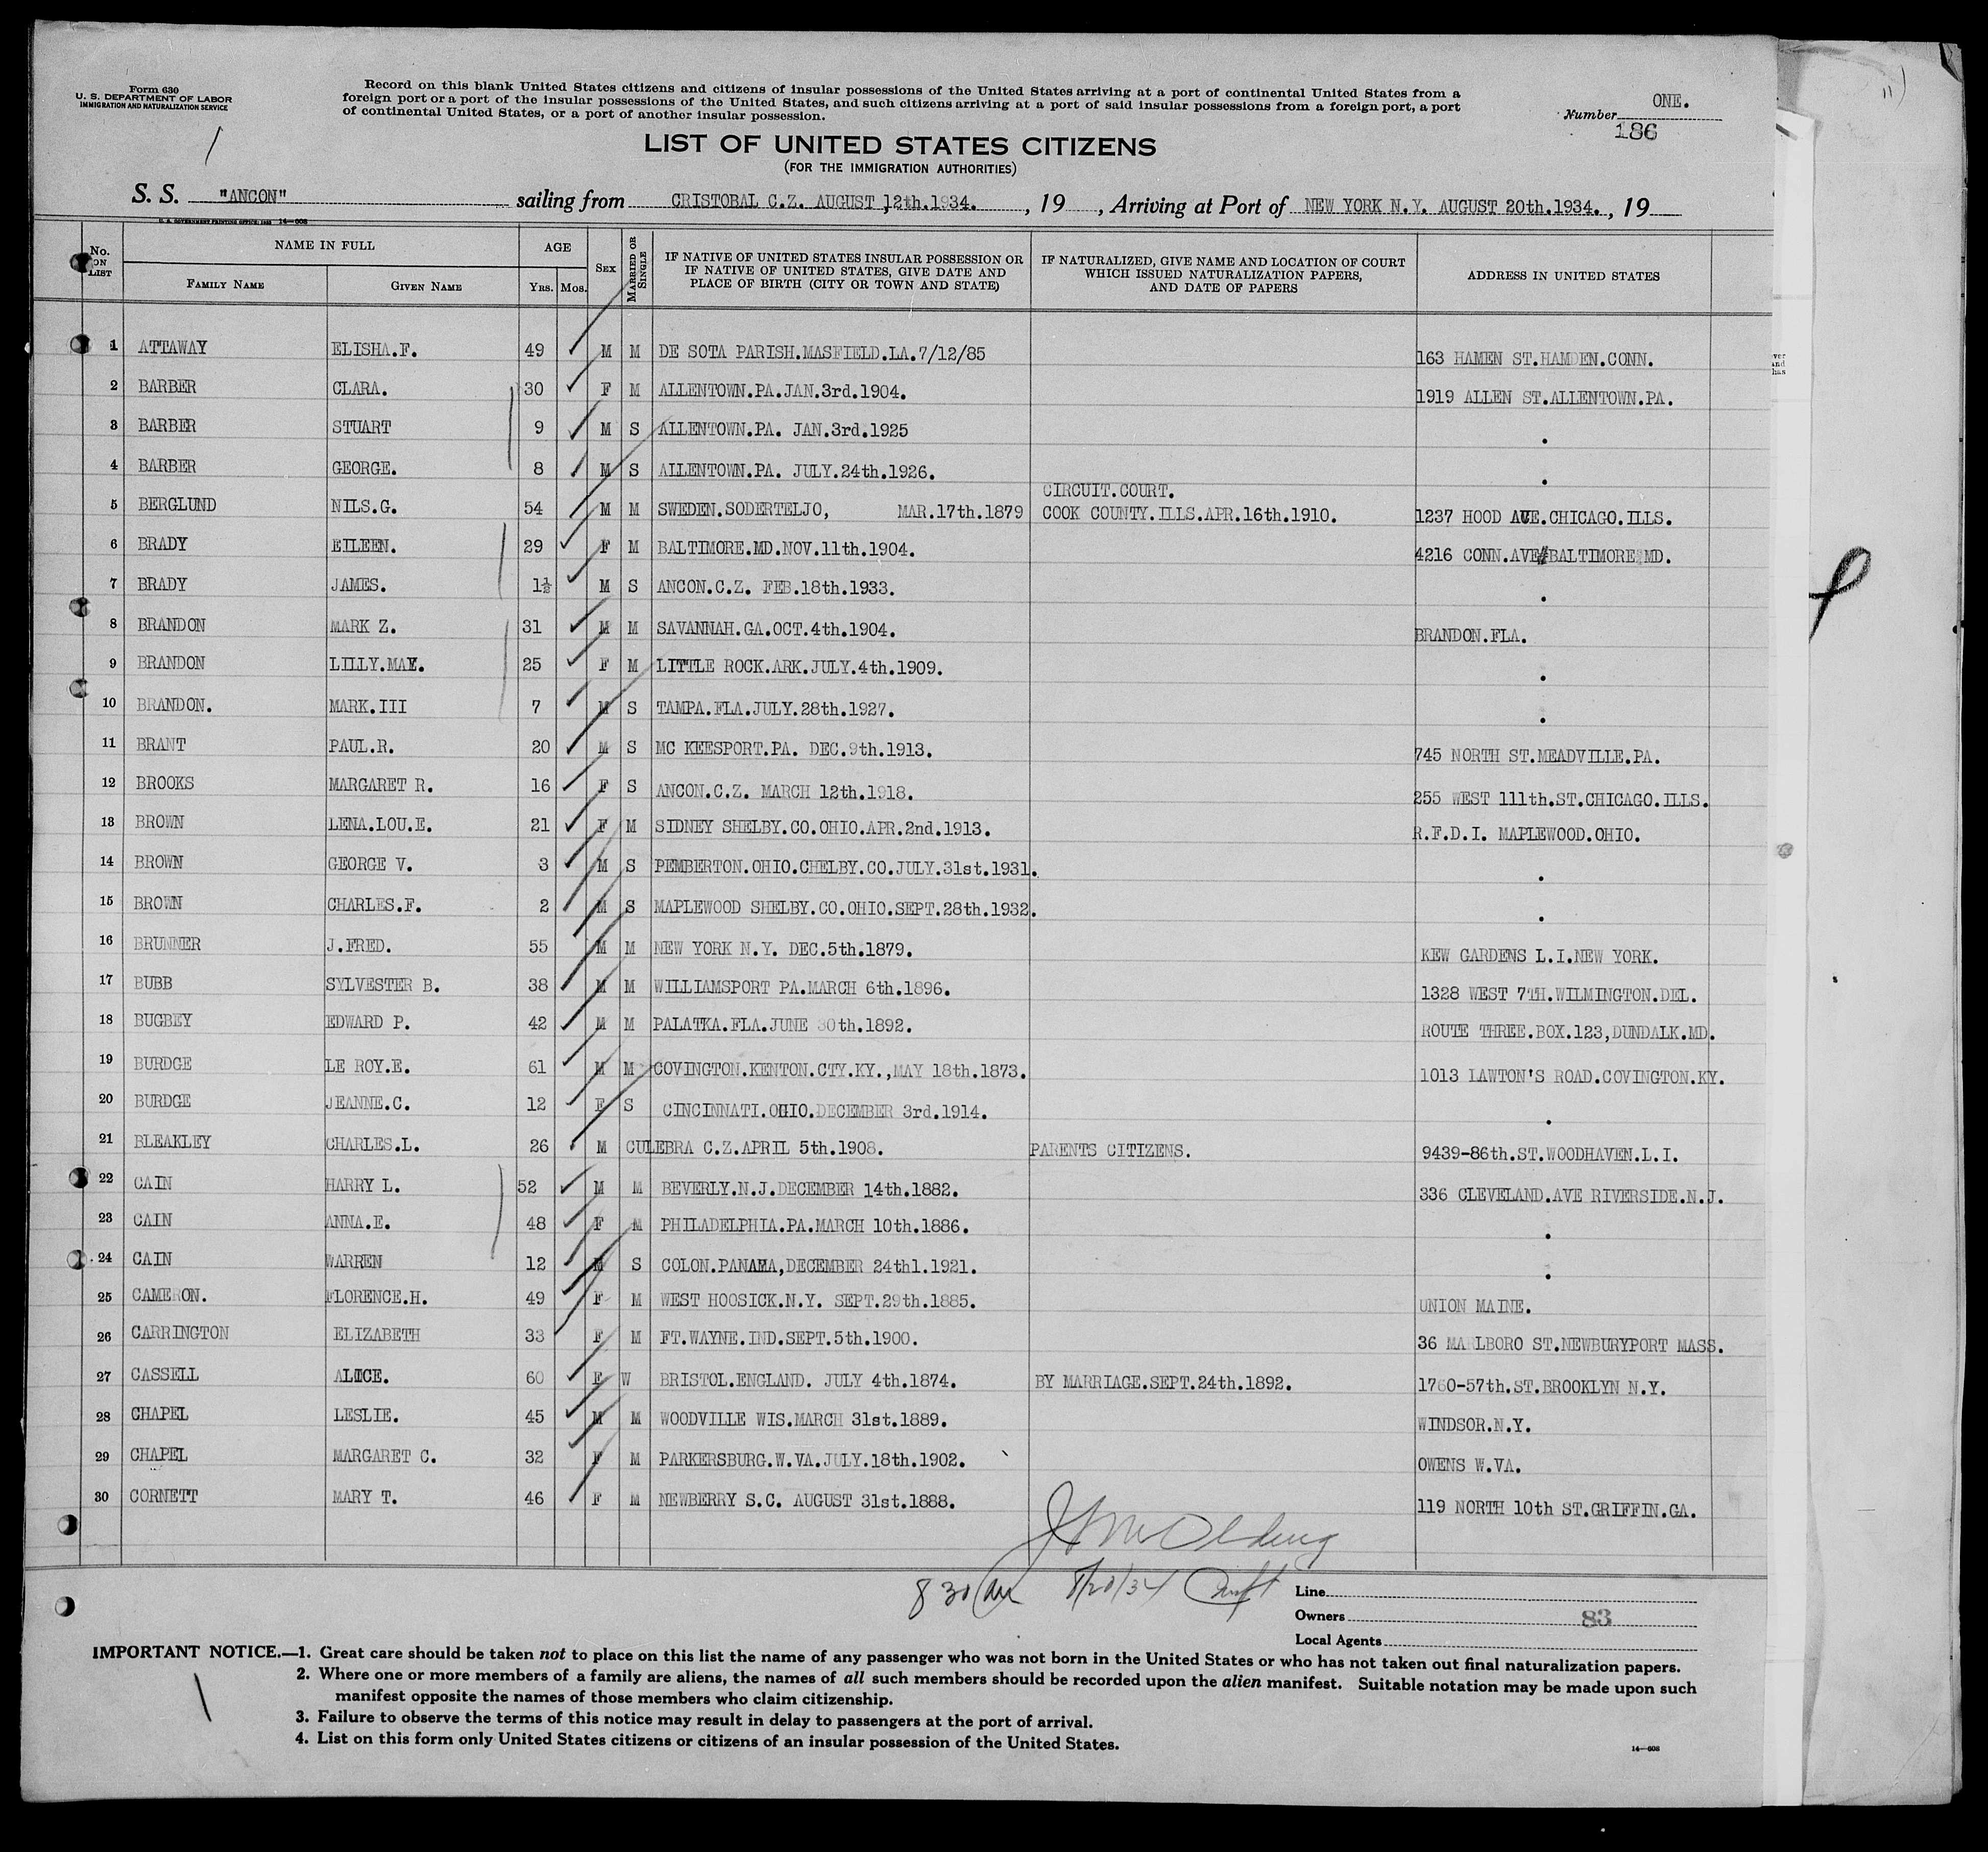 Form 630
U. S. DEPARTMENT OF LABOR
IMMIGRATION AND NATURALIZATION SERVICE
Record on this blank United States citizens and citizens of insular possessions of the United States arriving at a port of continental United States from a
foreign port or a port of the insular possessions of the United States, and such citizens arriving at a port of said insular possessions from a foreign port, a port
of continental United States, or a port of another insular possession.
Number ONE.
186
LIST OF UNITED STATES CITIZENS
(FOR THE IMMIGRATION AUTHORITIES)
S. S. "ANCON" sailing from CRISTOBAL C.Z. AUGUST 12th.1934. , 19 , Arriving at Port of NEW YORK N.Y. AUGUST 20th.1934. , 19
U. S. GOVERNMENT PRINTING OFFICE: 1933 14—608
No. ON LIST NAME IN FULL FAMILY NAME GIVEN NAME AGE YRS. MOS. SEX MARRIED OR SINGLE IF NATIVE OF UNITED STATES INSULAR POSSESSION OR IF NATIVE OF UNITED STATES, GIVE DATE AND PLACE OF BIRTH (CITY OR TOWN AND STATE) IF NATURALIZED, GIVE NAME AND LOCATION OF COURT WHICH ISSUED NATURALIZATION PAPERS, AND DATE OF PAPERS ADDRESS IN UNITED STATES
1 ATTAWAY ELISHA.F. 49 M M DE SOTA PARISH.MASFIELD.LA.7/12/85 163 HAMEN ST.HAMDEN.CONN.
2 BARBER CLARA. 30 F M ALLENTOWN.PA.JAN.3rd.1904. 1919 ALLEN ST.ALLENTOWN.PA.
3 BARBER STUART 9 M S ALLENTOWN.PA. JAN.3rd.1925 .
4 BARBER GEORGE. 8 M S ALLENTOWN.PA. JULY.24th.1926. .
5 BERGLUND NILS.G. 54 M M SWEDEN.SODERTELJO, MAR.17th.1879 CIRCUIT.COURT. COOK COUNTY.ILLS.APR.16th.1910. 1237 HOOD AVE.CHICAGO.ILLS.
6 BRADY EILEEN. 29 F M BALTIMORE.MD.NOV.11th.1904. 4216 CONN.AVE BALTIMORE MD.
7 BRADY JAMES. 1½ M S ANCON.C.Z. FEB.18th.1933. .
8 BRANDON MARK Z. 31 M M SAVANNAH.GA.OCT.4th.1904. BRANDON.FLA.
9 BRANDON LILLY.MAY. 25 F M LITTLE ROCK.ARK.JULY.4th.1909. .
10 BRANDON. MARK.III 7 M S TAMPA.FLA.JULY.28th.1927. .
11 BRANT PAUL.R. 20 M S MC KEESPORT.PA. DEC.9th.1913. 745 NORTH ST.MEADVILLE.PA.
12 BROOKS MARGARET R. 16 F S ANCON.C.Z. MARCH 12th.1918. 255 WEST 111th.ST.CHICAGO.ILLS.
13 BROWN LENA.LOU.E. 21 F M SIDNEY SHELBY.CO.OHIO.APR.2nd.1913. R.F.D.I. MAPLEWOOD.OHIO.
14 BROWN GEORGE V. 3 M S PEMBERTON.OHIO.CHELBY.CO.JULY.31st.1931. .
15 BROWN CHARLES.F. 2 M S MAPLEWOOD SHELBY.CO.OHIO.SEPT.28th.1932. .
16 BRUNNER J.FRED. 55 M M NEW YORK N.Y. DEC.5th.1879. KEW GARDENS L.I.NEW YORK.
17 BUBB SYLVESTER B. 38 M M WILLIAMSPORT PA.MARCH 6th.1896. 1328 WEST 7TH.WILMINGTON.DEL.
18 BUGBEY EDWARD P. 42 M M PALATKA.FLA.JUNE 30th.1892. ROUTE THREE.BOX.123,DUNDALK.MD.
19 BURDGE LE ROY.E. 61 M M COVINGTON.KENTON.CTY.KY.,MAY 18th.1873. 1013 LAWTON'S ROAD.COVINGTON.KY.
20 BURDGE JEANNE.C. 12 F S CINCINNATI.OHIO.DECEMBER 3rd.1914. .
21 BLEAKLEY CHARLES.L. 26 M CULEBRA C.Z.APRIL 5th.1908. PARENTS CITIZENS. 9439-86th.ST.WOODHAVEN.L.I.
22 CAIN HARRY L. 52 M M BEVERLY.N.J.DECEMBER 14th.1882. 336 CLEVELAND.AVE RIVERSIDE.N.J.
23 CAIN ANNA.E. 48 F M PHILADELPHIA.PA.MARCH 10th.1886. .
24 CAIN WARREN 12 M S COLON.PANAMA,DECEMBER 24th1.1921. .
25 CAMERON. FLORENCE.H. 49 F M WEST HOOSICK.N.Y. SEPT.29th.1885. UNION MAINE.
26 CARRINGTON ELIZABETH 33 F M FT.WAYNE.IND.SEPT.5th.1900. 36 MARLBORO ST.NEWBURYPORT MASS.
27 CASSELL ALICE. 60 F W BRISTOL.ENGLAND. JULY 4th.1874. BY MARRIAGE.SEPT.24th.1892. 1760-57th.ST.BROOKLYN N.Y.
28 CHAPEL LESLIE. 45 M M WOODVILLE WIS.MARCH 31st.1889. WINDSOR.N.Y.
29 CHAPEL MARGARET C. 32 F M PARKERSBURG.W.VA.JULY.18th.1902. OWENS W.VA.
30 CORNETT MARY T. 46 F M NEWBERRY S.C. AUGUST 31st.1888. 119 NORTH 10th ST.GRIFFIN.GA.
8 30 AM 8/20/34
Line
Owners 83
Local Agents
IMPORTANT NOTICE.—1. Great care should be taken not to place on this list the name of any passenger who was not born in the United States or who has not taken out final naturalization papers.
2. Where one or more members of a family are aliens, the names of all such members should be recorded upon the alien manifest. Suitable notation may be made upon such
manifest opposite the names of those members who claim citizenship.
3. Failure to observe the terms of this notice may result in delay to passengers at the port of arrival.
4. List on this form only United States citizens or citizens of an insular possession of the United States.
14—608